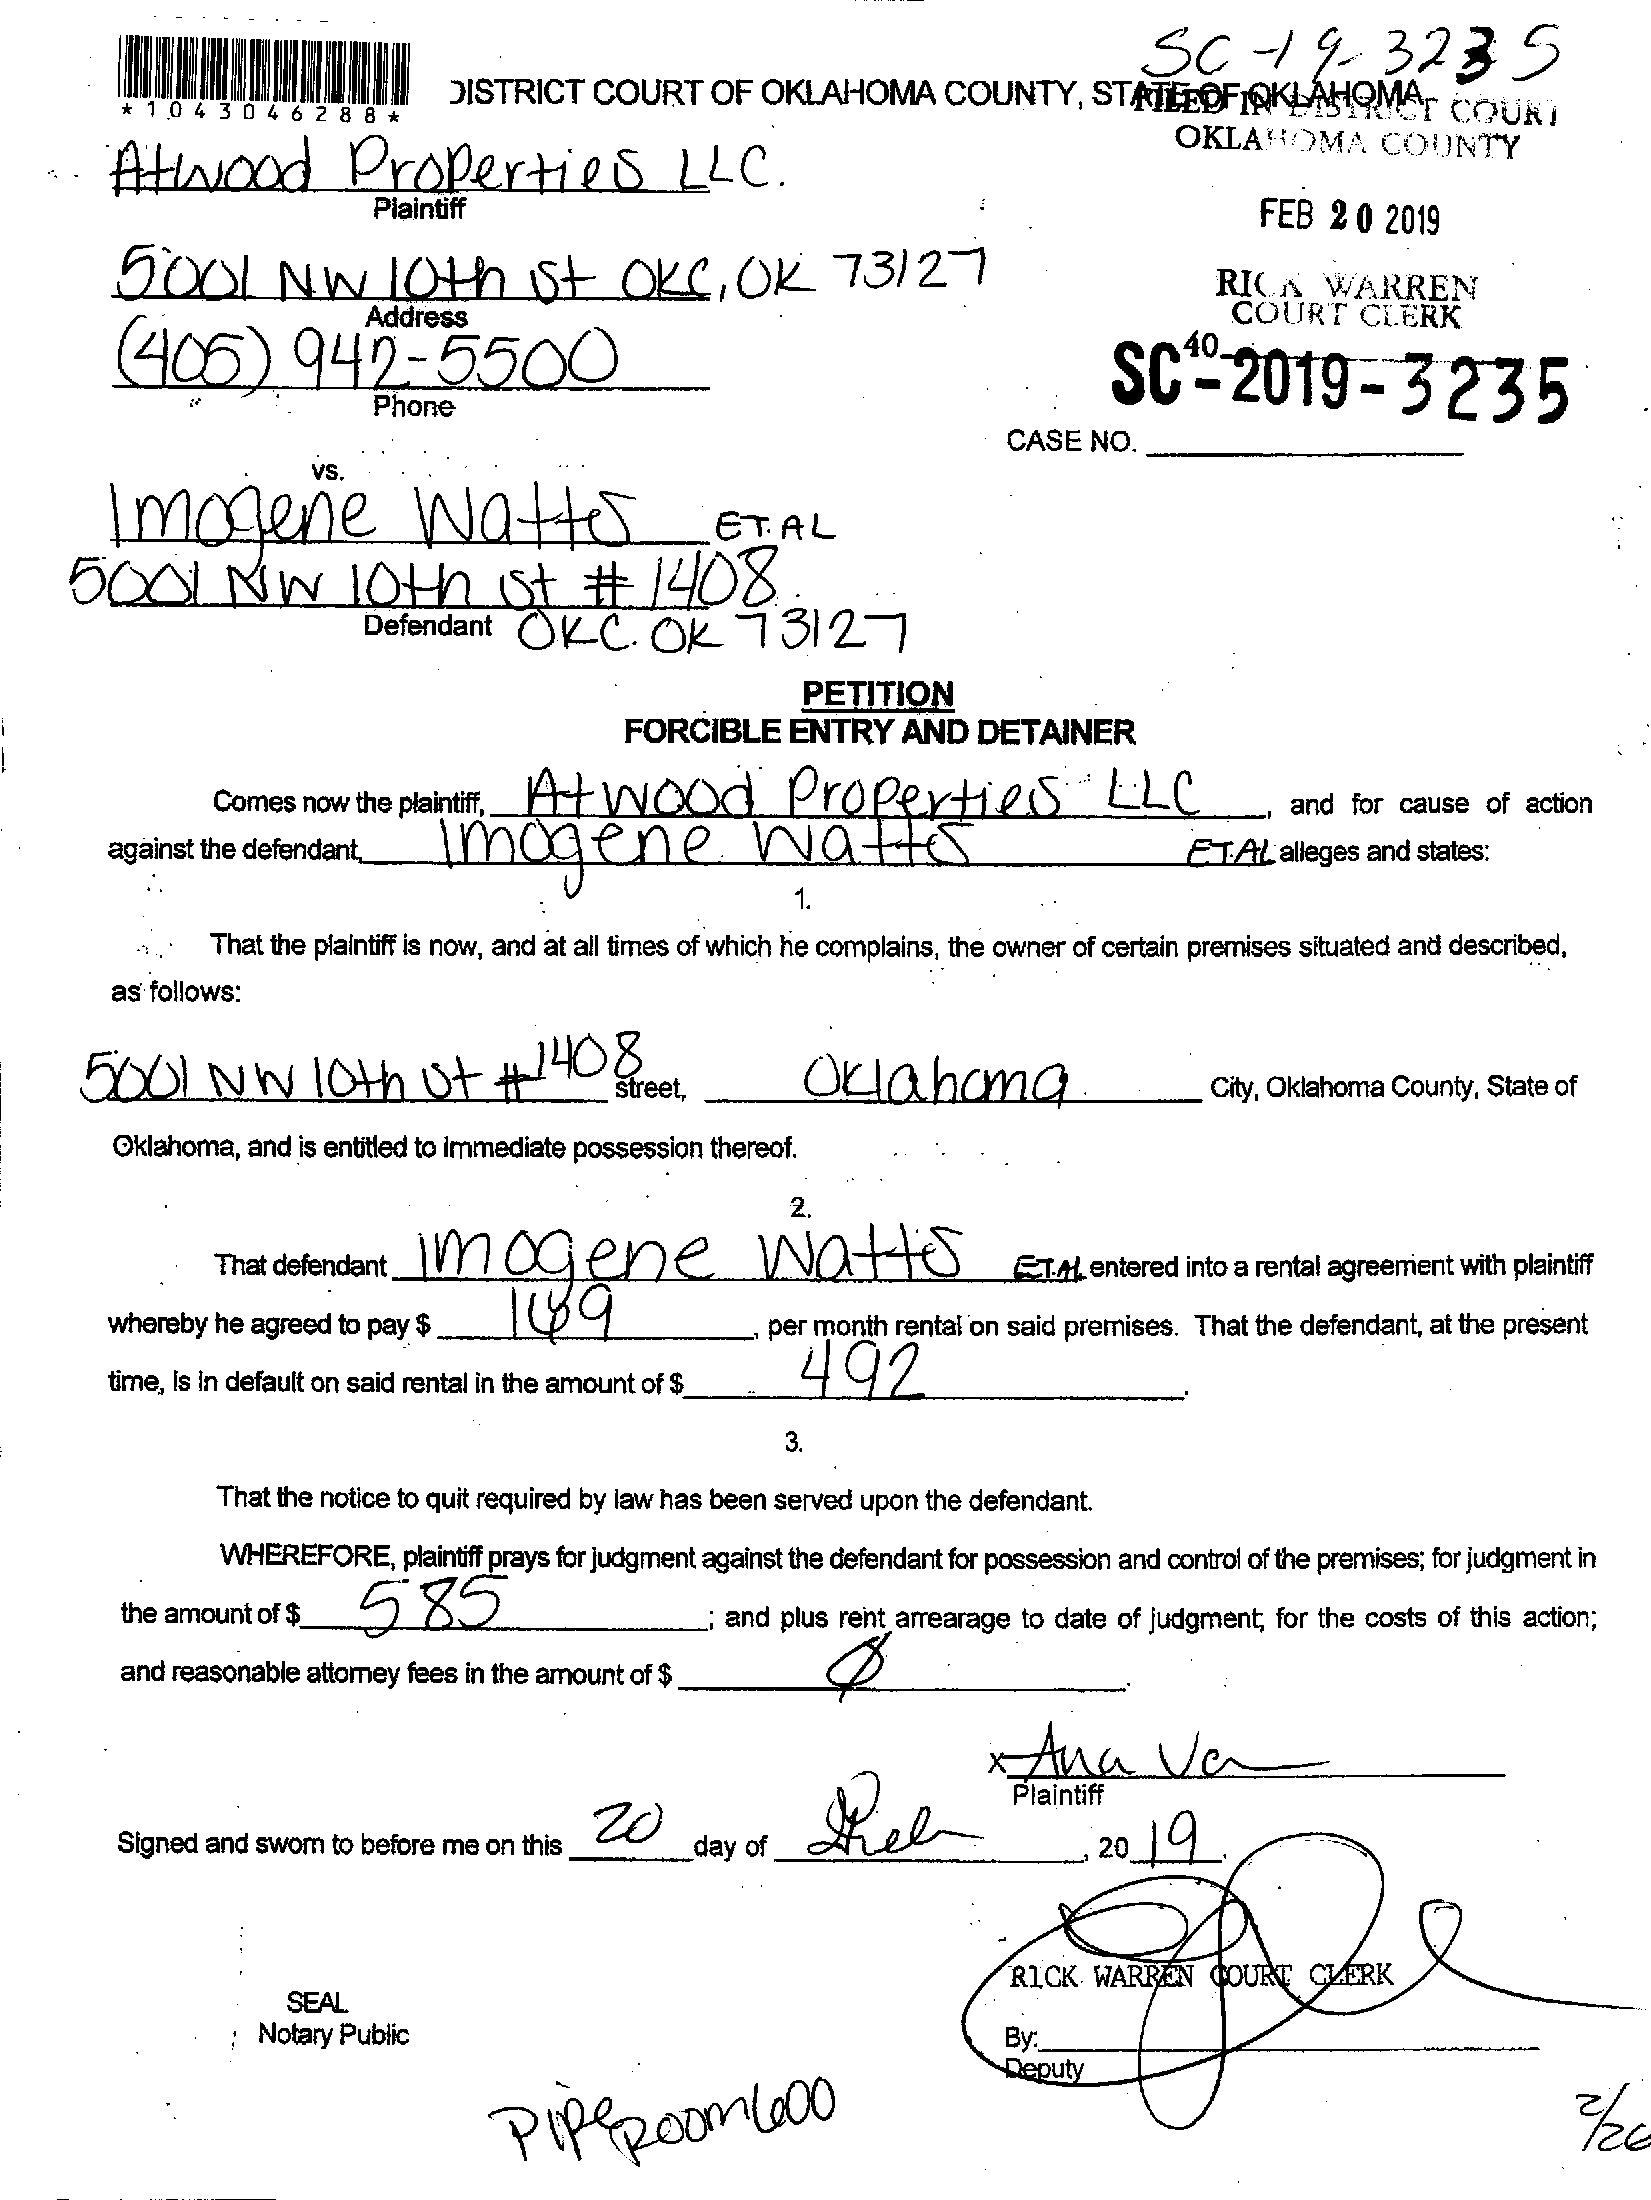 SC-19-3235
*1043046288*
DISTRICT COURT OF OKLAHOMA COUNTY, STATE OF OKLAHOMA
FILED IN DISTRICT COURT
OKLAHOMA COUNTY
Atwood Properties LLC.
Plaintiff
FEB 20 2019
5001 NW 10th St OKC, OK 73127
Address
RICK WARREN
COURT CLERK
(405) 942-5500
Phone
40
SC-2019-3235
CASE NO.
vs.
Imogene Watts ET.AL
5001 NW 10th St # 1408
Defendant OKC. OK 73127
PETITION
FORCIBLE ENTRY AND DETAINER
Comes now the plaintiff, Atwood Properties LLC, and for cause of action
against the defendant, Imogene Watts ET.AL alleges and states:
1.
That the plaintiff is now, and at all times of which he complains, the owner of certain premises situated and described,
as follows:
5001 NW 10th St #1408 street, Oklahoma City, Oklahoma County, State of
Oklahoma, and is entitled to immediate possession thereof.
2.
That defendant Imogene Watts ET.AL entered into a rental agreement with plaintiff
whereby he agreed to pay $ , per month rental on said premises. That the defendant, at the present
time, is in default on said rental in the amount of $ 492.
3.
That the notice to quit required by law has been served upon the defendant.
WHEREFORE, plaintiff prays for judgment against the defendant for possession and control of the premises; for judgment in
the amount of $ 585; and plus rent arrearage to date of judgment, for the costs of this action;
and reasonable attorney fees in the amount of $ Ø.
x Ana
Plaintiff
Signed and sworn to before me on this 20 day of Feb, 2019.
RICK WARREN COURT CLERK
SEAL
Notary Public
By:
Deputy
PIPE ROOM 600
2/26